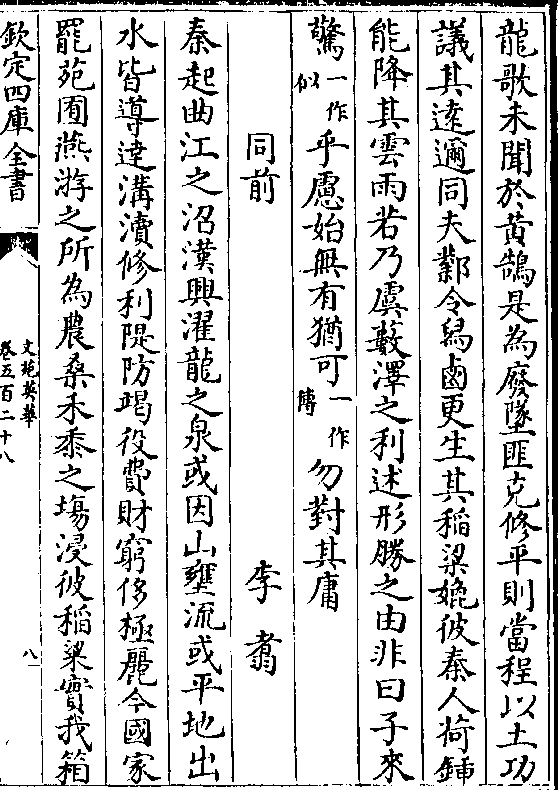 龍歌未聞於黃鵠是為廢墜匪克修平則當程以土功
議其遠邇同夫鄴令舄鹵更生其稲粱娩彼秦人荷鍤
能降其雲雨若乃虞藪澤之利述形勝之由非曰子來
驚一作似乎慮始無有猶可一作傳勿對其庸
同前 李翥
秦起曲江之沼漢興濯龍之泉或因山壅流或平地出
水皆導達溝瀆修利隄防竭役費財窮侈極麗今國家
罷苑囿燕游之所為農桑禾黍之塲浸彼稲粱實我箱
欽定四庫全書
文苑英華
卷五百二十八
八